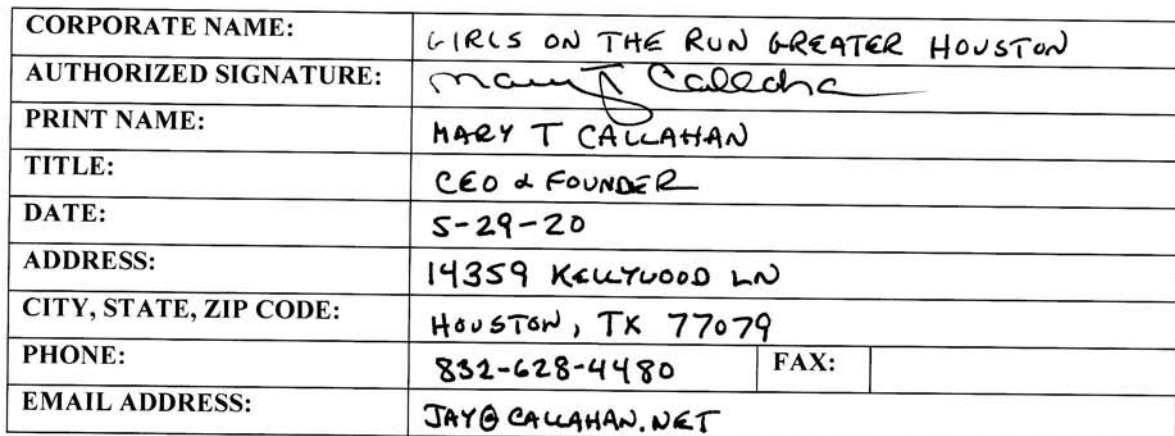 CORPORATE NAME: GIRLS ON THE RUN GREATER HOUSTON
AUTHORIZED SIGNATURE: Mary T Callaha
PRINT NAME: MARY T CALLAHAN
TITLE: CEO & FOUNDER
DATE: 5-29-20
ADDRESS: 14359 KELLYWOOD LN
CITY, STATE, ZIP CODE: HOUSTON, TX 77079
PHONE: 832-628-4480 FAX:
EMAIL ADDRESS: JAY@CALLAHAN.NET